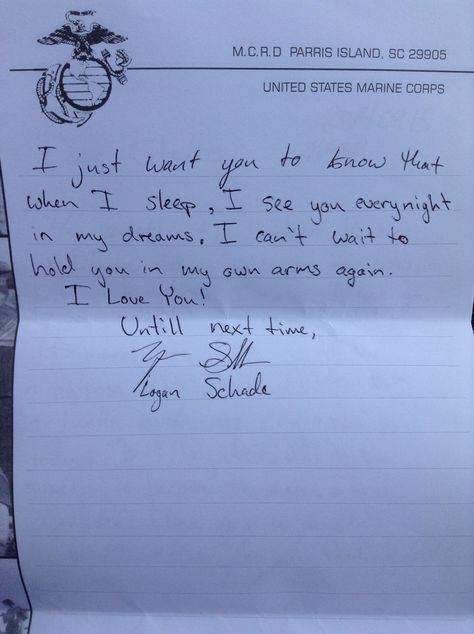 M.C.R.D PARRIS ISLAND, SC 29905
UNITED STATES MARINE CORPS
I just want you to know that
when I sleep, I see you everynight
in my dreams. I can't wait to
hold you in my own arms again.
I Love You!
Untill next time,
Logan Schade